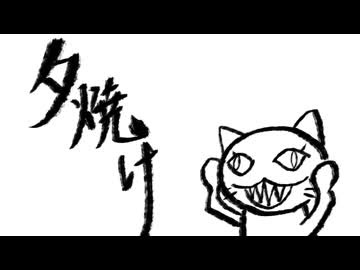 夕焼け